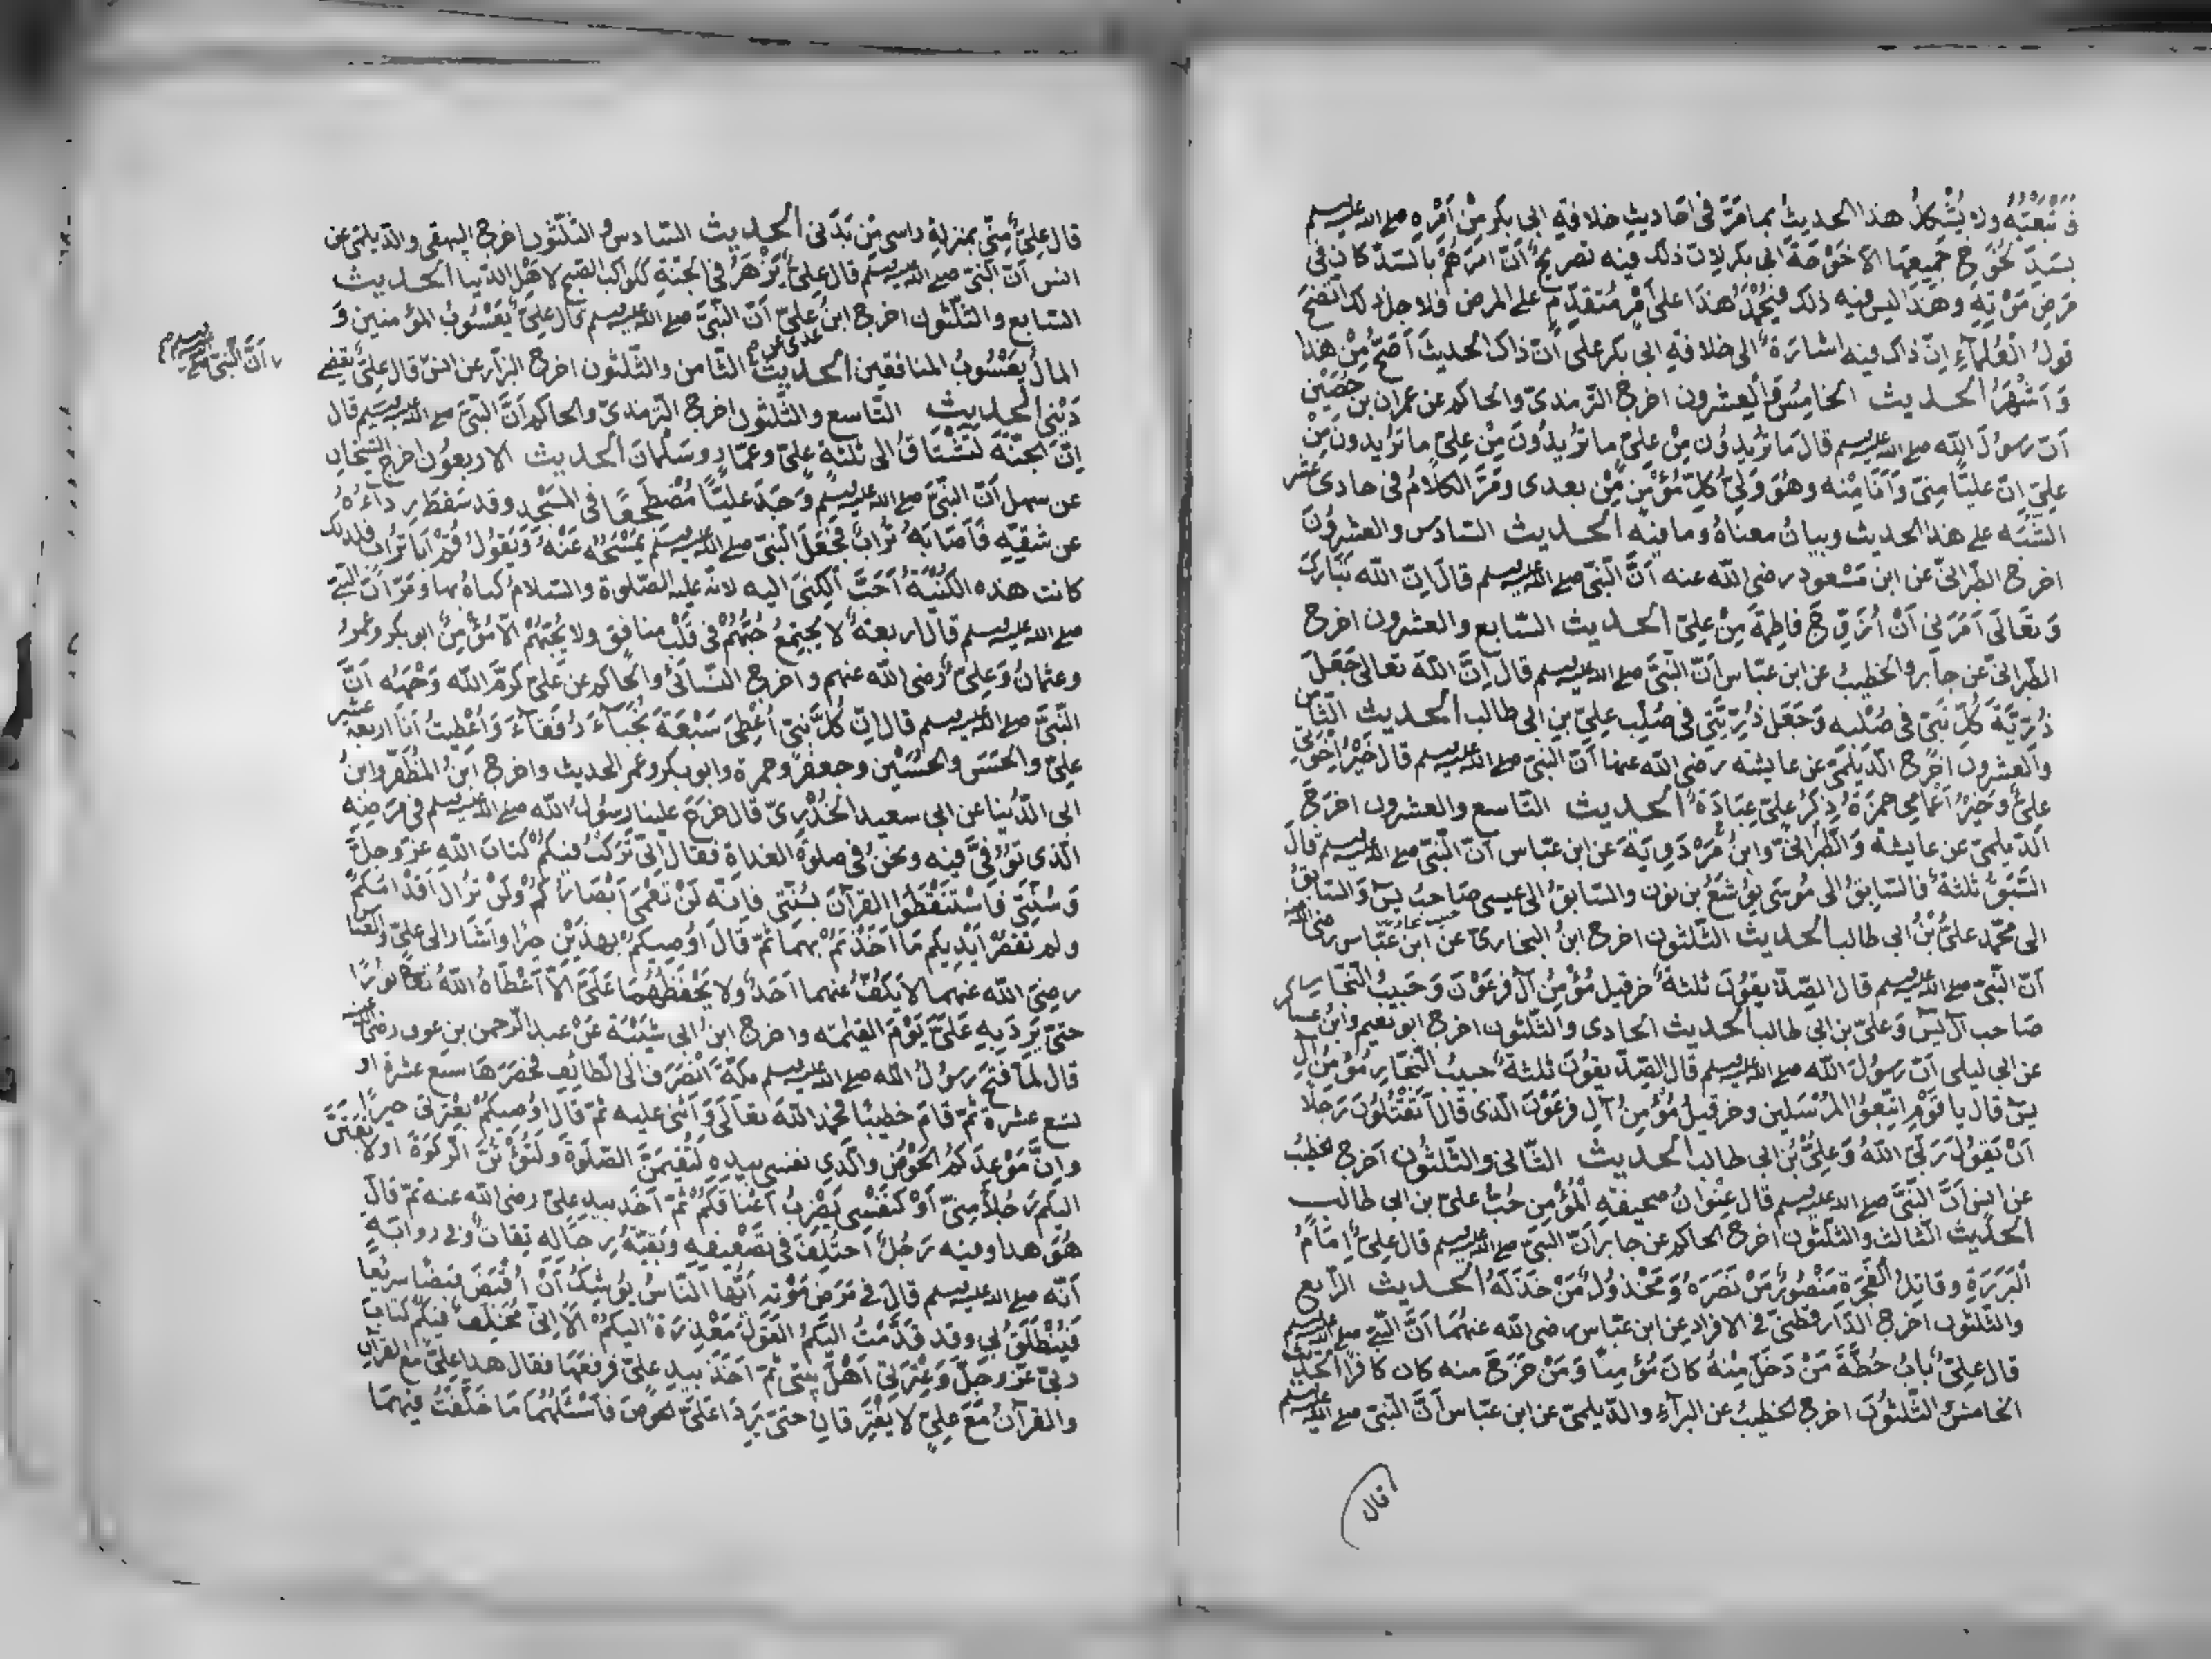 فتبعته ولا يشكل هذا الحديث بما مر في احاديث خلافة ابي بكر من امره صلى الله عليه وسلم
بسد الخوخ جميعها الا خوخة ابي بكر لان ذلك فيه تصريح ان امرهم بالسد كان في
مرض موته وهذا ليس فيه ذلك فيحمل هذا على امر متقدم على المرض فلاجل ذلك اتضح
قول العلماء ان ذاك فيه اشارة الى خلافة ابي بكر على ان ذاك الحديث اصح من هذا
واشهر الحديث الخامس والعشرون اخرج الترمذي والحاكم عن عمران بن حصين
ان رسول الله صلى الله عليه وسلم قال ما تريدون من علي ما تريدون من علي ما تريدون من
علي ان عليا مني وانا منه وهو ولي كل مؤمن من بعدي ومر الكلام في حادي عشر
الشبه على هذا الحديث وبيان معناه وما فيه الحديث السادس والعشرون
اخرج الطبراني عن ابن مسعود رضي الله عنه ان النبي صلى الله عليه وسلم قال ان الله تبارك
وتعالى امرني ان ازوج فاطمة من علي الحديث السابع والعشرون اخرج
الطبراني عن جابر والخطيب عن ابن عباس ان النبي صلى الله عليه وسلم قال ان الله تعالى جعل
ذرية كل نبي في صلبه وجعل ذريتي في صلب علي بن ابي طالب الحديث الثامن
والعشرون اخرج الديلمي عن عايشه رضي الله عنها ان النبي صلى الله عليه وسلم قال خير اخوتي
علي وخير اعمامي حمزة ذكر علي عبادة الحديث التاسع والعشرون اخرج
الديلمي عن عايشة والطبراني وابن مردويه عن ابن عباس ان النبي صلى الله عليه وسلم قال
السبق ثلثة فالسابق الى موسى يوشع بن نون والسابق الى عيسى صاحب يس والسابق
الى محمد علي بن ابي طالب الحديث الثلثون اخرج ابن البخاري عن ابن عباس رضي الله عنه
ان النبي صلى الله عليه وسلم قال الصديقون ثلثة حزقيل مؤمن آل فرعون وحبيب النجار
صاحب آل يس وعلي بن ابي طالب الحديث الحادي والثلثون اخرج ابو نعيم وابن عساكر
عن ابي ليلى ان رسول الله صلى الله عليه وسلم قال الصديقون ثلثة حبيب النجار مؤمن آل
يس قال يا قوم اتبعوا المرسلين وحزقيل مؤمن آل فرعون الذي قال اتقتلون رجلا
ان يقول ربي الله وعلي بن ابي طالب الحديث الثاني والثلثون اخرج الخطيب
عن انس ان النبي صلى الله عليه وسلم قال عنوان صحيفة المؤمن حب علي بن ابي طالب
الحديث الثالث والثلثون اخرج الحاكم عن جابر ان النبي صلى الله عليه وسلم قال علي امام
البررة وقاتل الفجرة منصور من نصره ومخذول من خذله الحديث الرابع
والثلثون اخرج الدارقطني في الافراد عن ابن عباس رضي الله عنهما ان النبي صلى الله عليه وسلم
قال علي باب حطة من دخل منه كان مؤمنا ومن خرج منه كان كافرا الحديث
الخامس الثلثون اخرج الخطيب عن البراء والديلمي عن ابن عباس ان النبي صلى الله عليه وسلم
قال
قال علي مني بمنزلة راسي من بدني الحديث السادس والثلثون اخرج البيهقي والديلمي عن
انس ان النبي صلى الله عليه وسلم قال علي يزهر في الجنة ككواكب الصبح لاهل الدنيا الحديث
السابع والثلثون اخرج ابن عدي عن علي ان النبي صلى الله عليه وسلم قال علي يعسوب المؤمنين و
المال يعسوب المنافقين الحديث الثامن والثلثون اخرج البزار عن انس قال علي يقضي
ان النبي صلى الله عليه وسلم
ديني الحديث التاسع والثلثون اخرج الترمذي والحاكم ان النبي صلى الله عليه وسلم قال
ان الجنة لتشتاق الى ثلثة علي وعمار وسلمان الحديث الاربعون اخرج الشيخان
عن سهل ان النبي صلى الله عليه وسلم وجد عليا مضطجعا في المسجد وقد سقط رداءه
عن شقه فاصابه تراب فجعل النبي صلى الله عليه وسلم يمسحه عنه ويقول قم ابا تراب فلذلك
كانت هذه الكنية احب الكنى اليه لانه عليه الصلوة والسلام كناه بها ومر ان النبي
صلى الله عليه وسلم قال اربعة لا يجتمع حبهم في قلب منافق ولا يحبهم الا مؤمن ابو بكر وعمر
وعثمان وعلي رضي الله عنهم واخرج النسائي والحاكم عن علي كرم الله وجهه ان
النبي صلى الله عليه وسلم قال ان كل نبي اعطي سبعة نجباء رفقاء واعطيت انا اربعة عشر
علي والحسن والحسين وجعفر وحمزة وابو بكر وعمر الحديث واخرج ابن المظفر وابن
ابي الدنيا عن ابي سعيد الخدري قال خرج علينا رسول الله صلى الله عليه وسلم في مرضه
الذي توفي فيه ونحن في صلوة الغداة فقال اني تركت فيكم كتاب الله عز وجل
وسنتي فاستنقطوا القرآن بسنتي فانه لن تعمى ابصاركم ولن تزال اقدامكم
ولم تقصر ايديكم ما اخذتم بهما ثم قال اوصيكم بهذين خيرا واشار الى علي والعباس
رضي الله عنهما لا يكف عنهما احد ولا يحفظهما علي الا اعطاه الله تعالى نورا
حتى يرد به علي يوم القيمة واخرج ابن ابي شيبة عن عبد الرحمن بن عوف رضي الله عنه
قال لما فتح رسول الله صلى الله عليه وسلم مكة انصرف الى الطائف فحصرها سبع عشرة او
تسع عشرة ثم قام خطيبا فحمد الله تعالى واثنى عليه ثم قال اوصيكم بعترتي خيرا
وان موعدكم الحوض والذي نفسي بيده لتقيمن الصلوة ولتؤتن الزكوة او لابعثن
اليكم رجلا مني او كنفسي يضرب اعناقكم ثم اخذ بيد علي رضي الله عنه ثم قال
هو هذا وفيه رجل اختلف في تضعيفه وبقية رجاله ثقات وفي رواية
انه صلى الله عليه وسلم قال في مرض موته ايها الناس يوشك ان اقبض قبضا سريعا
فينطلق بي وقد قدمت اليكم القول معذرة اليكم الا اني مخلف فيكم كتاب
ربي عز وجل وعترتي اهل بيتي ثم اخذ بيد علي فرفعها فقال هذا علي مع القرآن
والقرآن مع علي لا يفترقان حتى يردا علي الحوض فاسئلهما ما خلفت فيهما